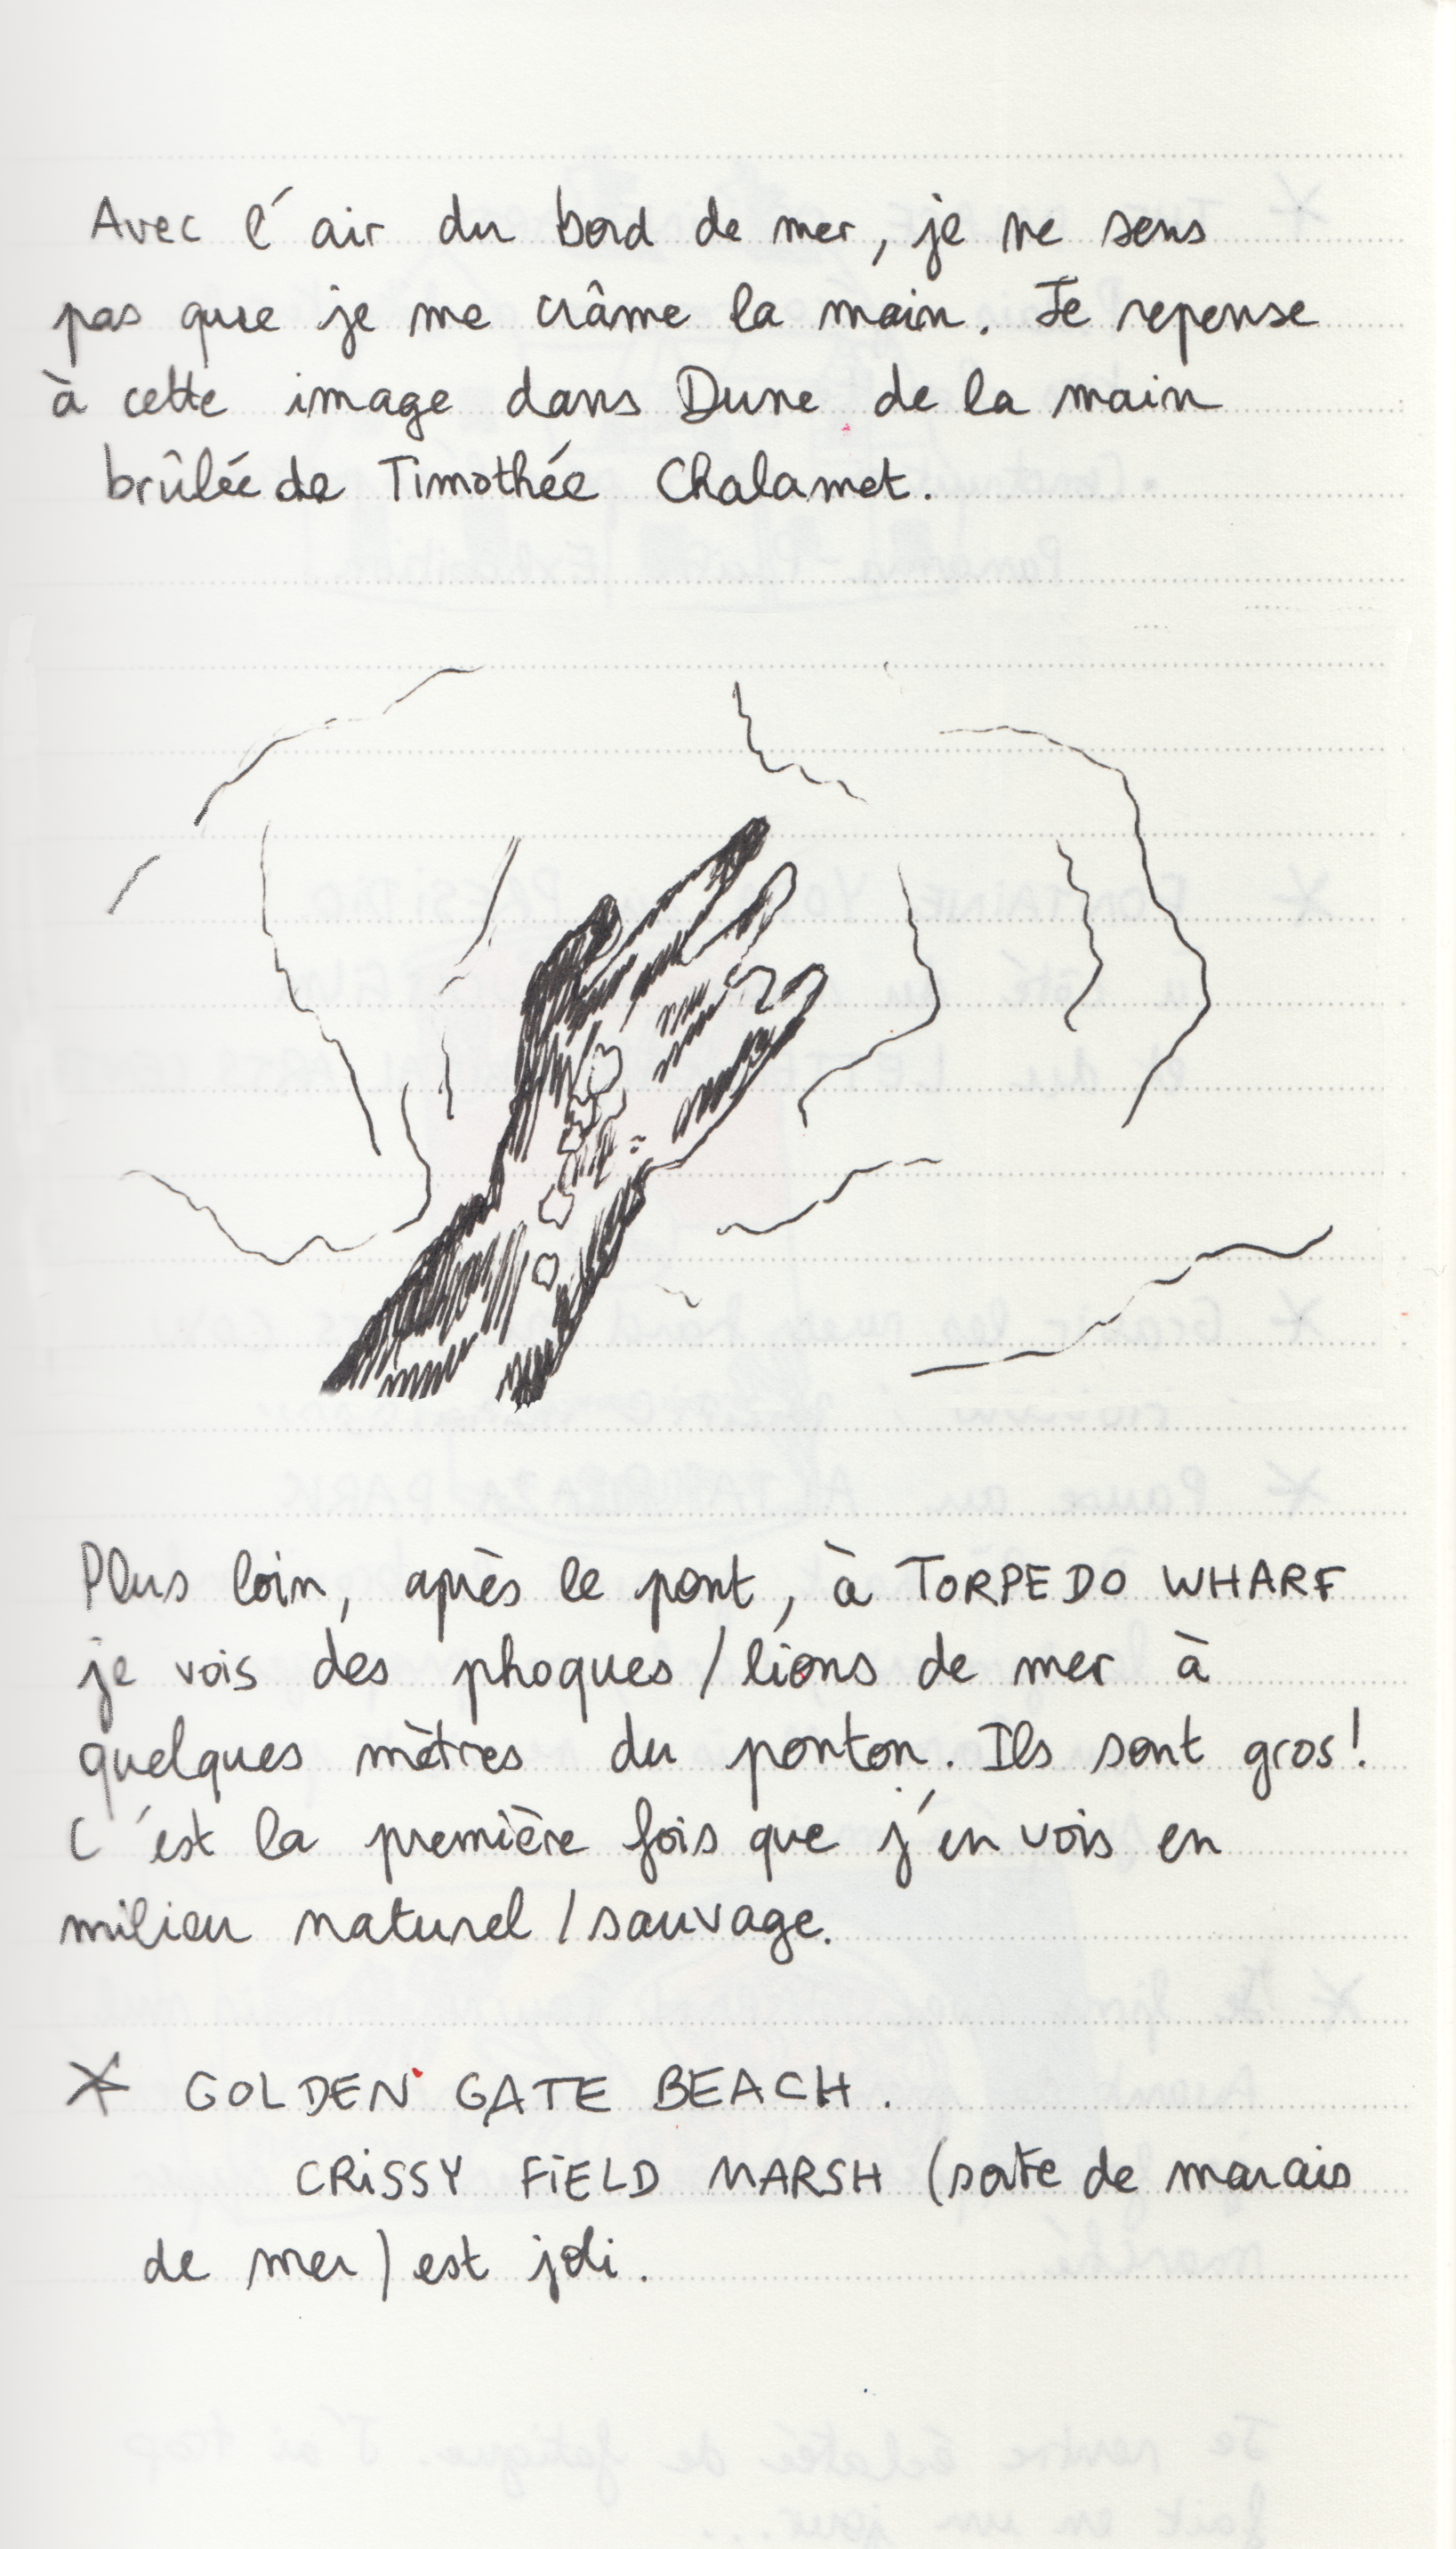 Avec l'air du bord de mer, je ne sens
pas que je me crâme la main. Je repense
à cette image dans Dune de la main
brûlée de Timothée Chalamet.
Plus loin, après le pont, à TORPEDO WHARF
je vois des phoques / lions de mer à
quelques mètres du ponton. Ils sont gros!
C'est la première fois que j'en vois en
milieu naturel / sauvage.
* GOLDEN GATE BEACH.
CRiSSY FiELD MARSH (sorte de marais
de mer) est joli.